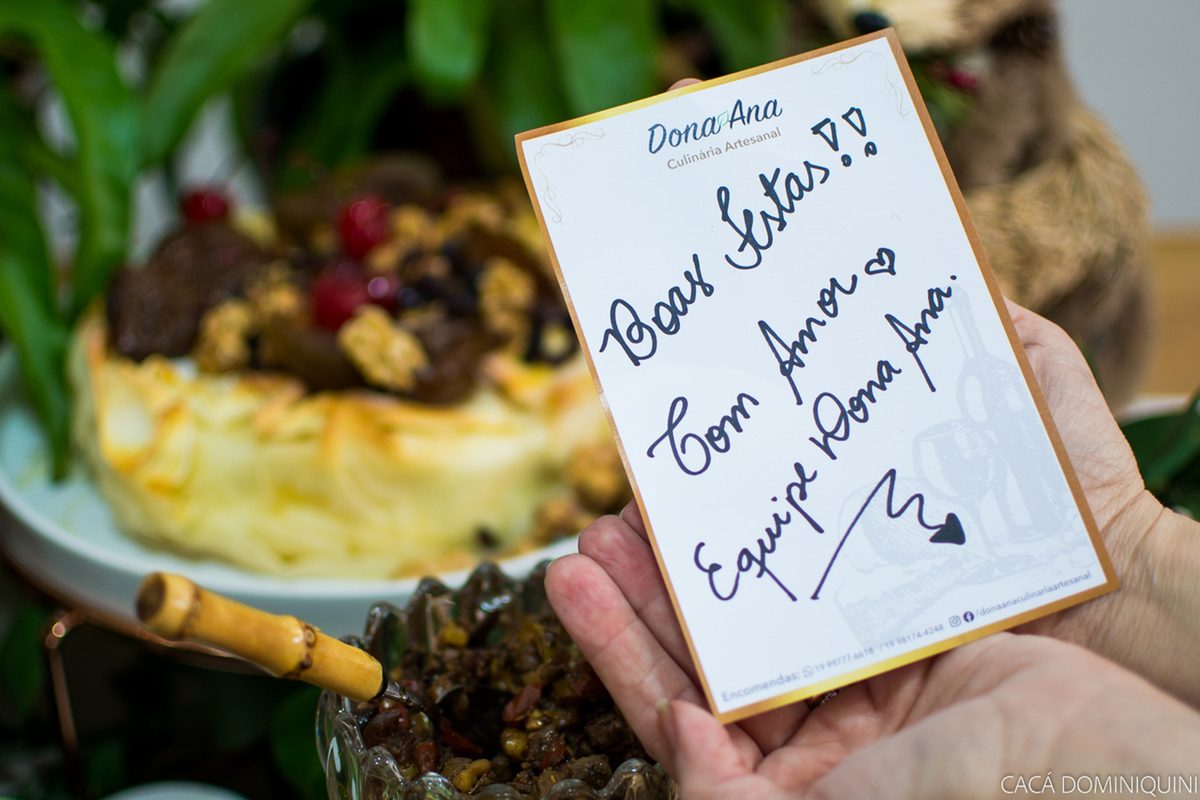 Dona Ana
Culinária Artesanal
Boas Festas!!
Com Amor
Equipe Dona Ana.
Encomendas: 19 99777.6618 / 19 98174-4248 /donaanaculinariaartesanal
CACÁ DOMINIQUINI